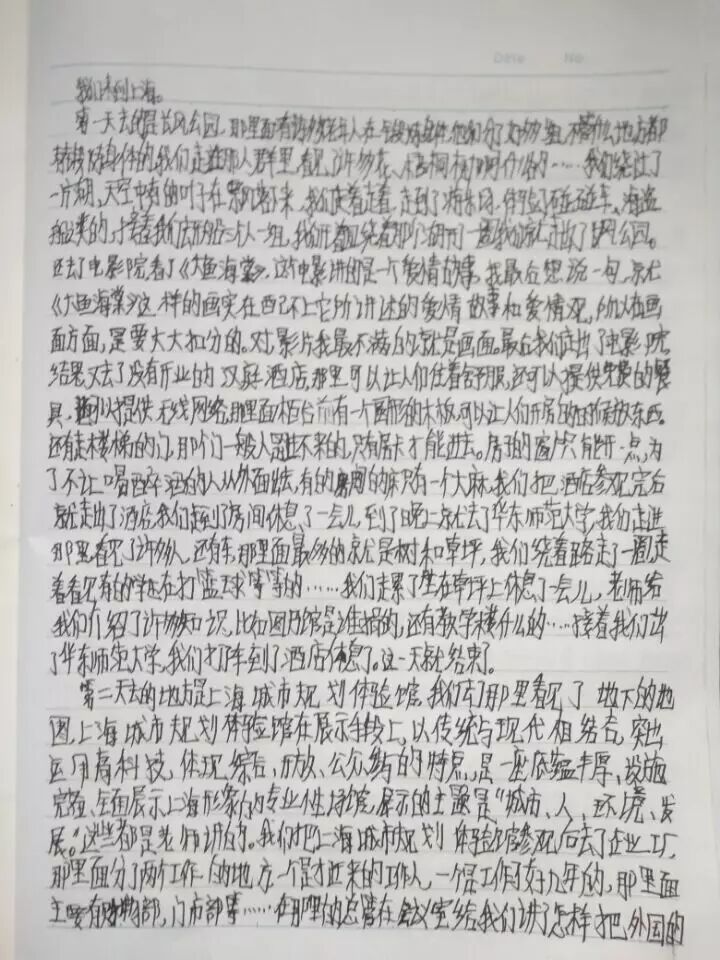 Date No
我们来到上海。
第一天去的是长风公园，那里面有许多老年人在锻炼身体他们分了好多组，不管什么地方都
是锻炼身体的，我们走在那人群里，看见许多花、梧桐树啊什么的……我们绕过了
一片湖，天空中有的叶子在飘下来，我们走着走着，走到了游乐场，体验了碰碰车、海盗
船之类的，接着我们去划船三人一组，我们开着船绕着那个湖开一圈我们就走出了长风公园。
还去了电影院看了《大鱼海棠》，这个电影讲的是一个爱情故事，我最后想说一句，就是
《大鱼海棠》这样的画实在配不上它所讲述的爱情故事和爱情观，所以在画
面方面，是要大大扣分的。对影片我最不满的就是画面。最后我们走出了电影院，
结果又去了没有开业的汉庭酒店，那里可以让人们住着舒服，还可以提供免费的餐
具，还可以提供无线网络，那里面柜台前有一个圆形的木板，可以让人们开房的时候放东西。
还有走楼梯的门，那个门一般人是进不来的，只有房卡才能进去。房间的窗户只能开一点，为
了不让喝醉酒的人从外面出去，有的房间的床只有一个大床，我们把酒店参观完后
就走出了酒店，我们回到了房间休息了一会儿，到了晚上就去了华东师范大学，我们走进
那里看见了许多人，还有车，那里面最多的就是树和草坪，我们绕着路走了一圈，走
着看见有的学生在打篮球等等的……我们走累了坐在草坪上休息了一会儿，老师给
我们介绍了许多知识，比如图书馆是谁捐的，还有教学楼什么的……接着我们出
了华东师范大学，我们打车到了酒店休息了。这一天就结束了。
第二天去的地方是上海城市规划体验馆，我们去了那里看见了地下的地
图，上海城市规划体验馆在展示手段上，以传统与现代相结合，突出
运用高科技，体现综合、开放、公众参与的特点，是一座底蕴丰厚、设施
完整、全面展示上海形象的专业性场馆，展示的主题是“城市、人、环境、发
展。”这些都是老师讲的。我们把上海城市规划体验馆参观后去了企业工厂，
那里面分了两个工作人的地方一个是才近来的工作人，一个是工作了好几年的，那里面
主要有购物部，门市部等……在那里的总管在会议室给我们讲了怎样把外国的